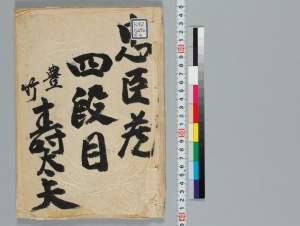 忠臣蔵
四段目
豊竹
寿太夫